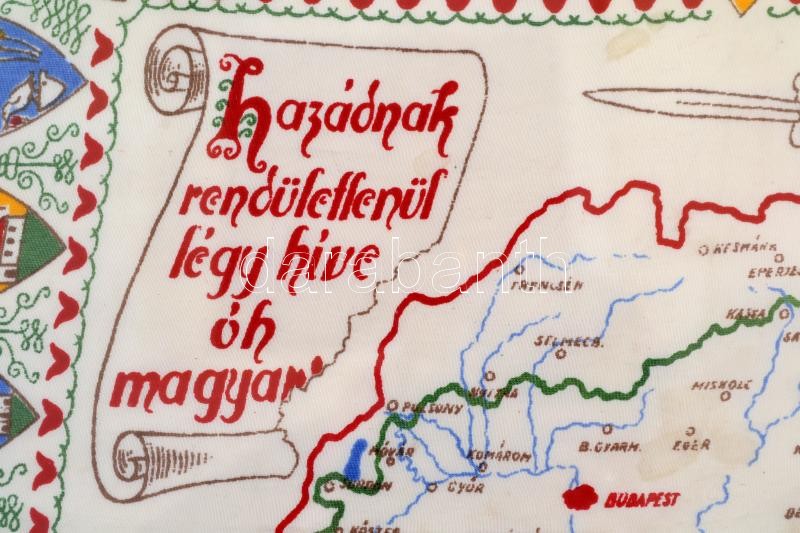 Hazádnak
rendületlenül
légy híve
óh
magyar
darabanth
KÉSMÁRK
EPERJES
TRENCSÉN
KASSA
SELMECB.
NYITRA
MISKOLC
POZSONY
B.GYARM.
EGER
MÓVÁR
KOMÁROM
SOPRON
GYŐR
BUDAPEST
KŐSZEG